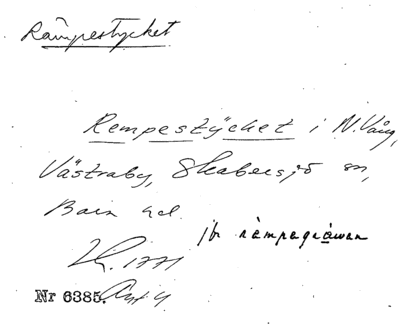 Rämpestycket
Rempestÿcket i N. Vång,
Västraby, Skabersjö sn,
Bara hd.
jfr rämpagräwen
Nr 6385.